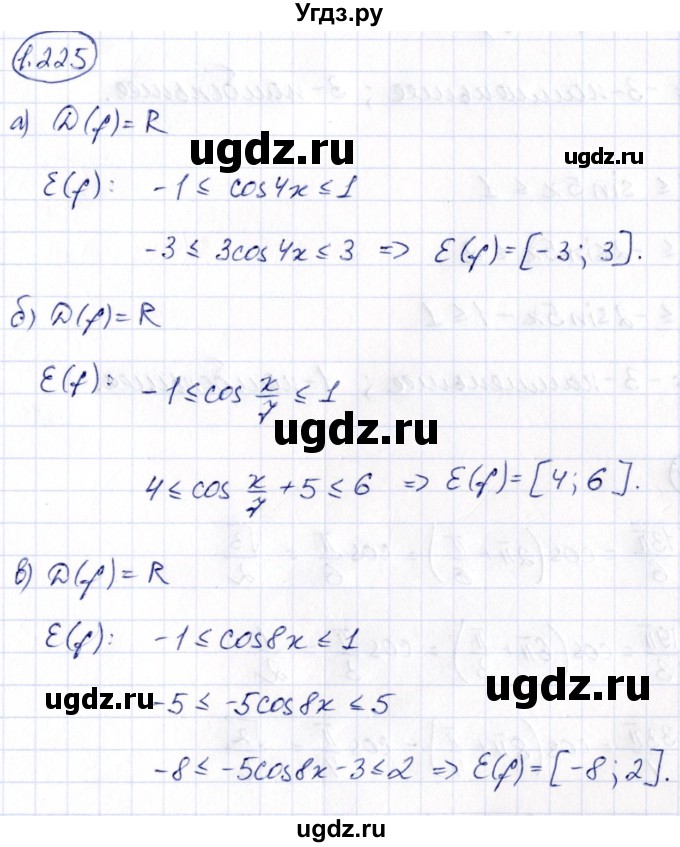 Угдз.ру
1.225
а) D(f)=R
ugdz.ru
E(f): -1 ≤ cos4x ≤ 1
-3 ≤ 3cos4x ≤ 3 => E(f)=[-3; 3].
б) D(f)=R
E(f): -1 ≤ cos x/7 ≤ 1
ugdz.ru
4 ≤ cos x/7 + 5 ≤ 6 => E(f)=[4; 6].
в) D(f)=R
E(f): -1 ≤ cos8x ≤ 1
ugdz.ru
ugdz.ru -5 ≤ -5cos8x ≤ 5
-8 ≤ -5cos8x-3 ≤ 2 => E(f)=[-8; 2].
ugdz.ru